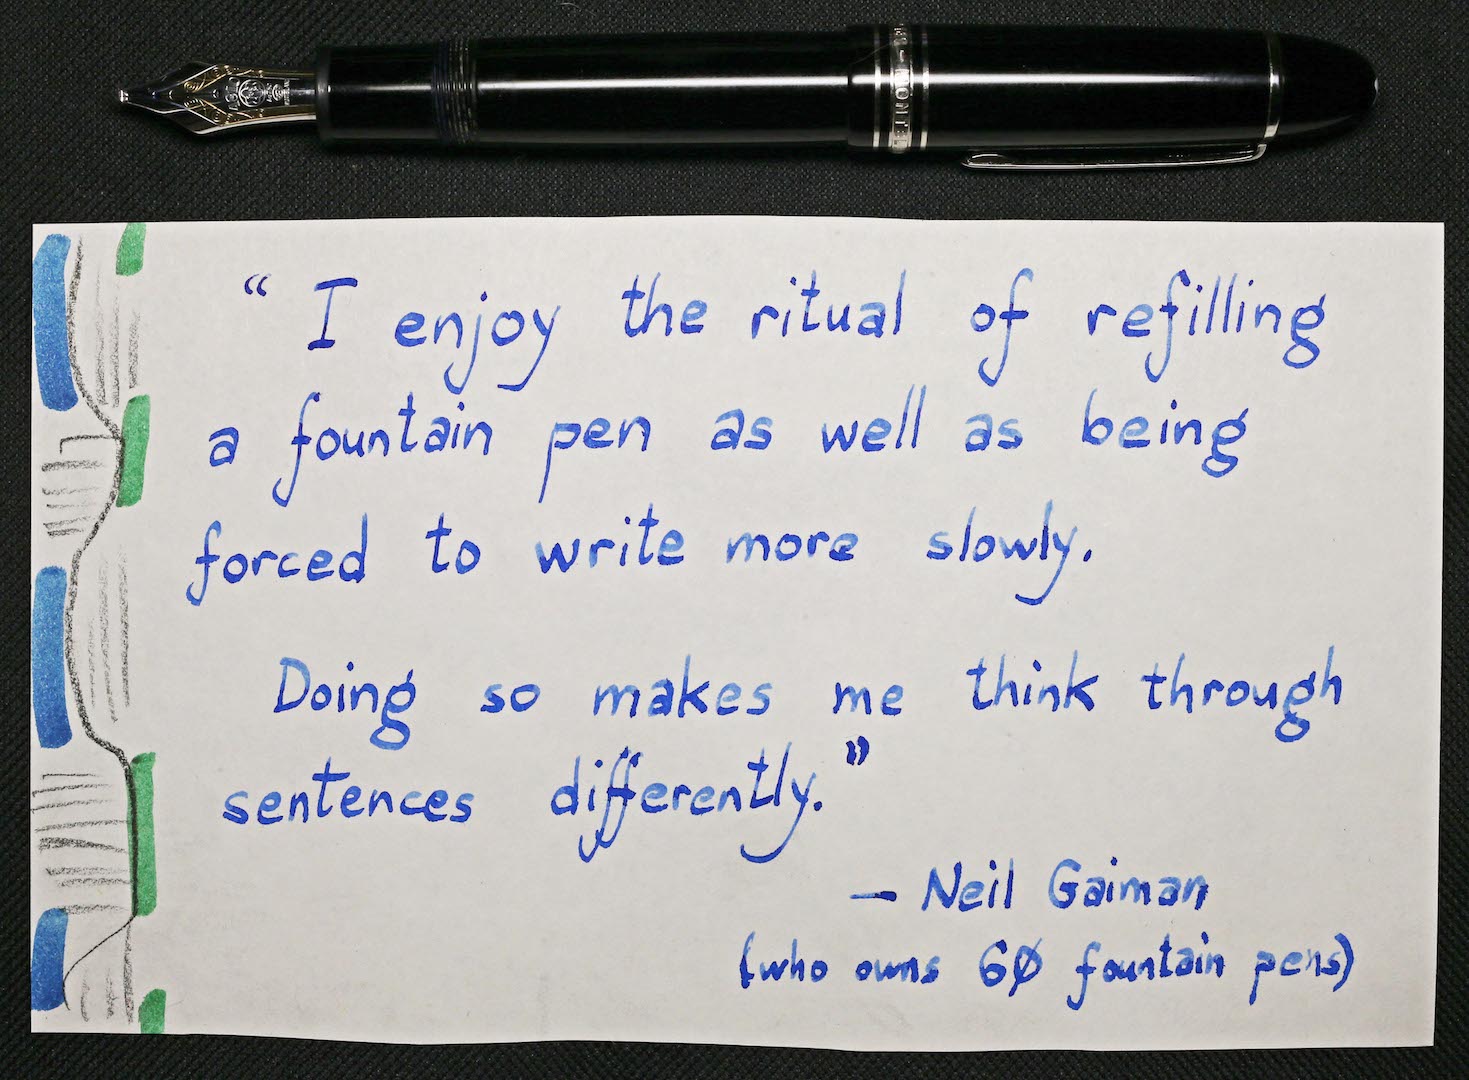 “ I enjoy the ritual of refilling
a fountain pen as well as being
forced to write more slowly.
Doing so makes me think through
sentences differently.”
— Neil Gaiman
(who owns 6Ø fountain pens)